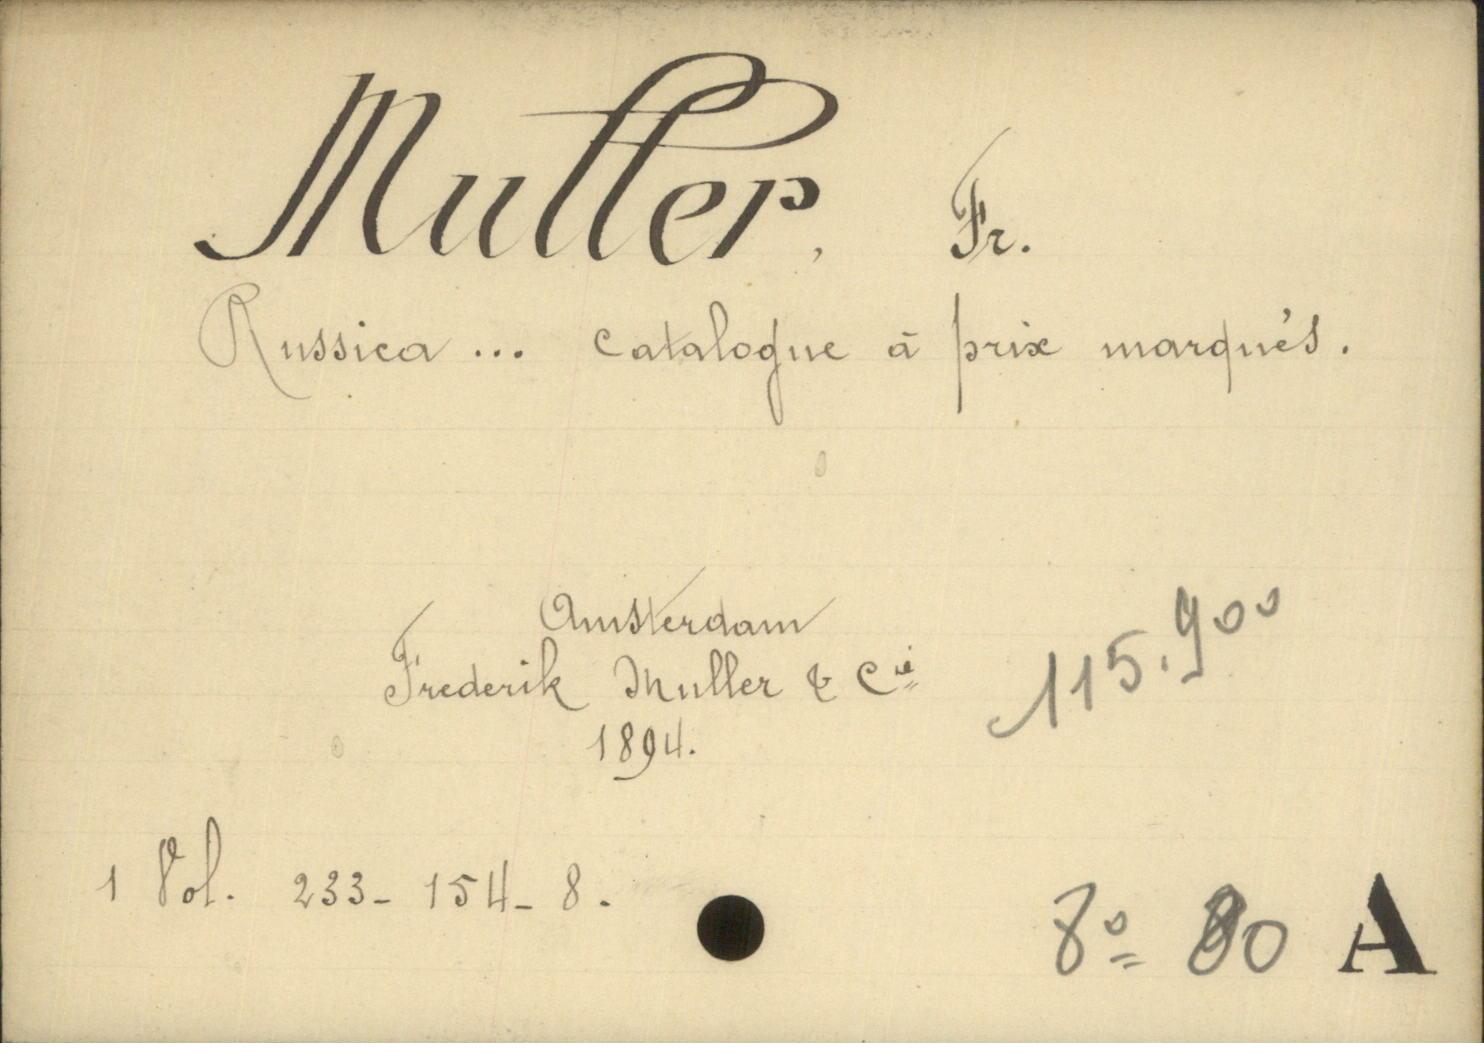 Muller, Fr.
Russica ... catalogue à prix marqués.
Amsterdam
Frederik Muller & Cie
1894.
115.900
1 Vol. 233 - 154 - 8.
8° 80 A